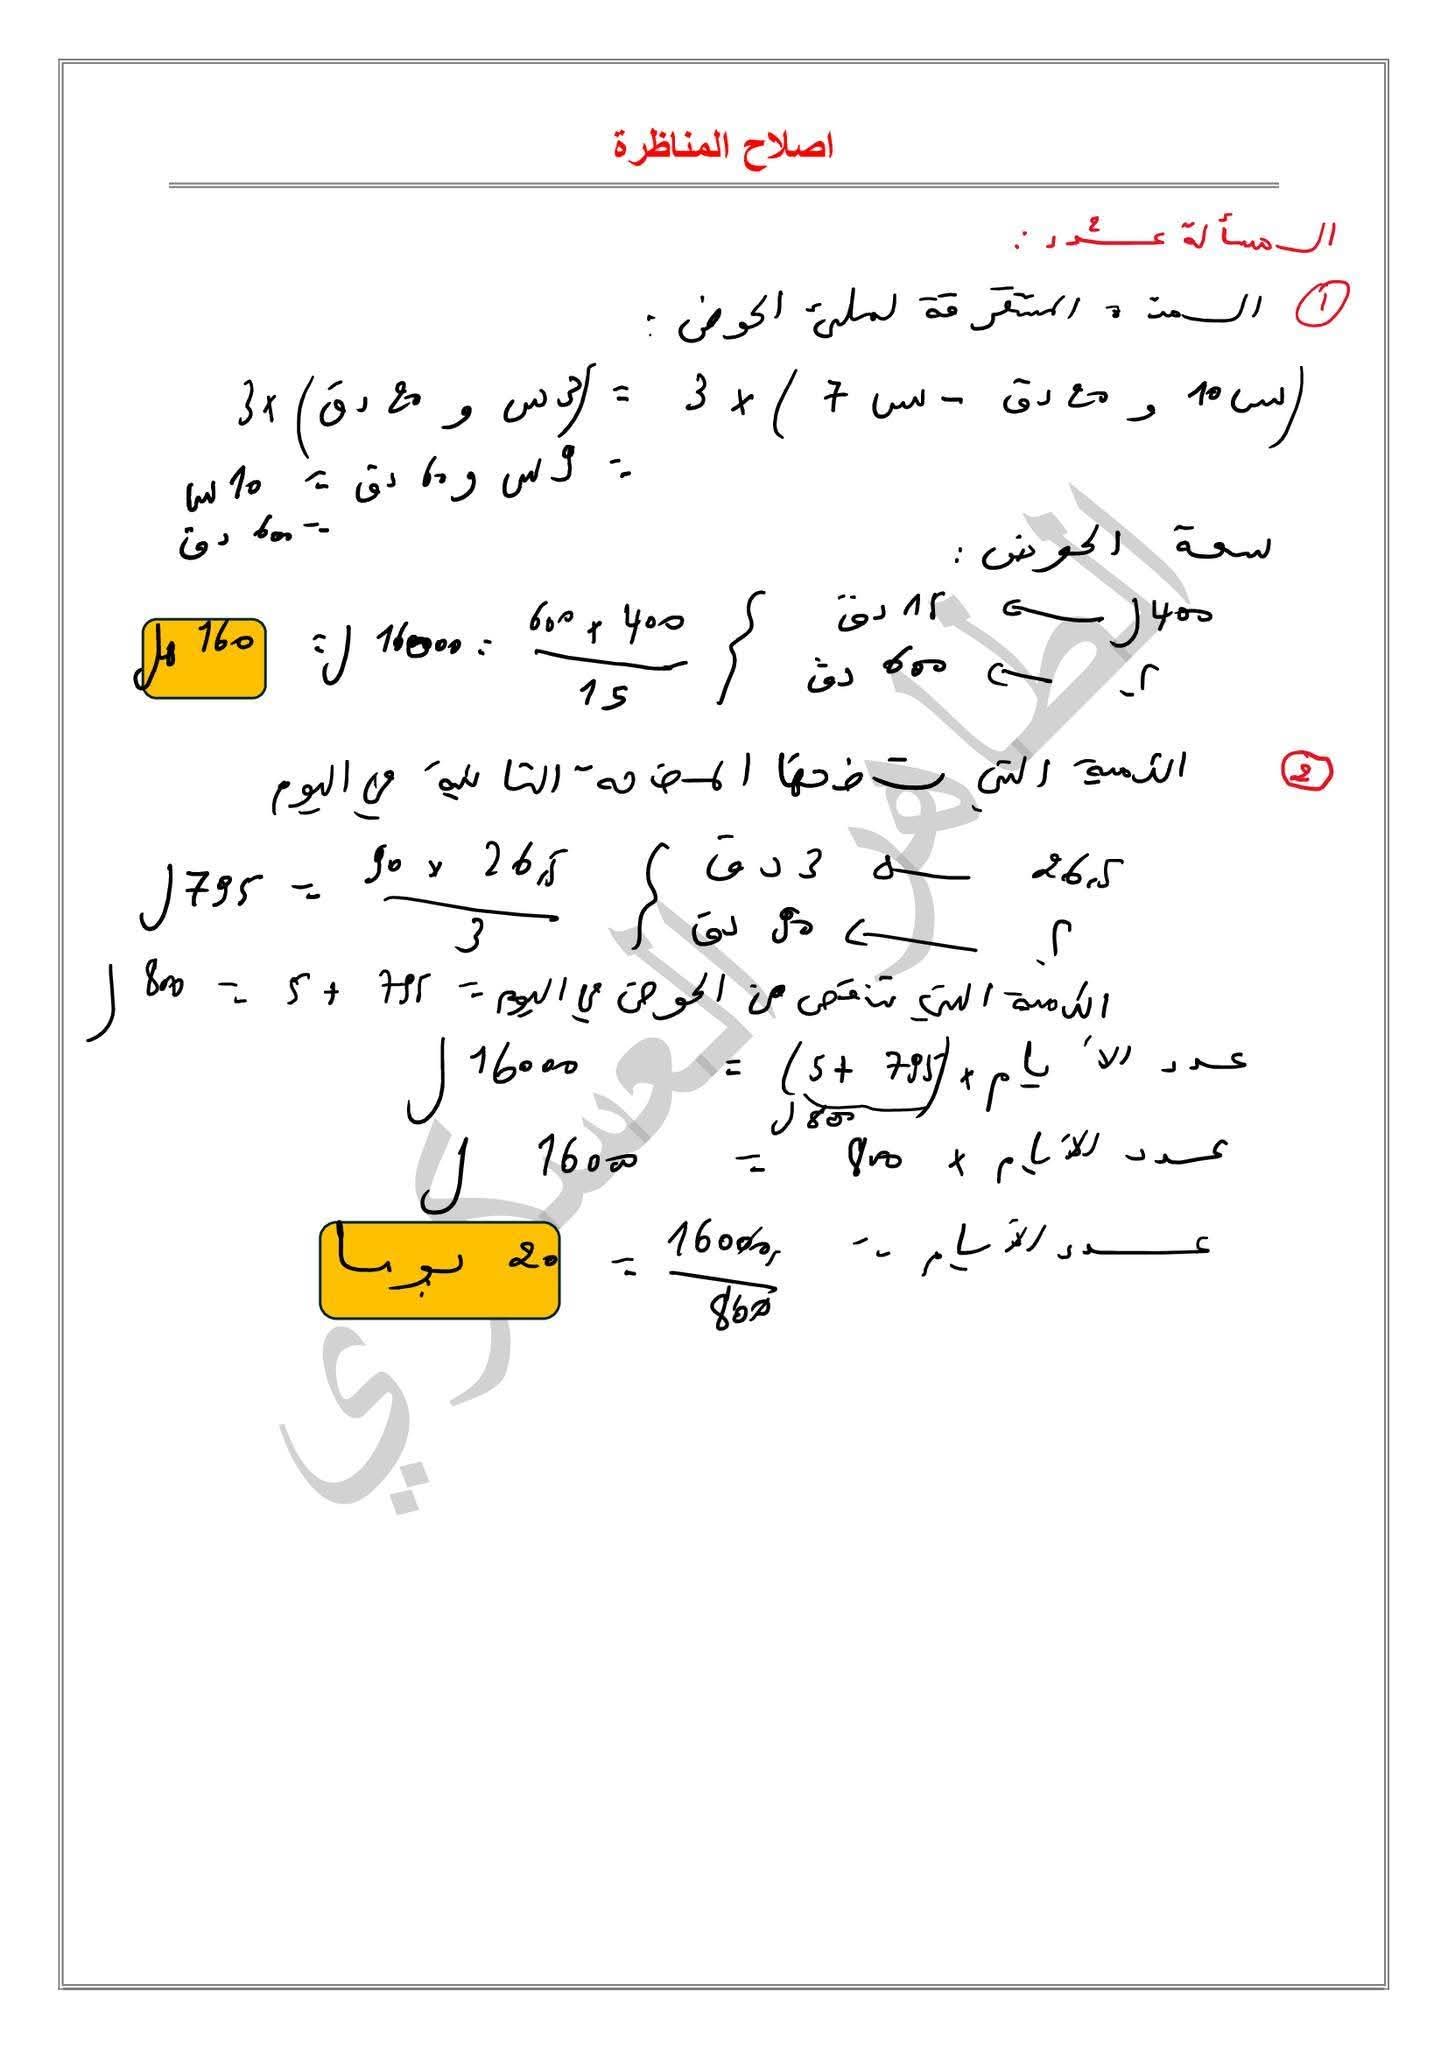 اصلاح المناظرة
المسألة عدد 2 :
1 المدة المستغرقة لملئ الحوض :
(10 س و 20 دق - 7 س) × 3 = (3 س و 20 دق) × 3
= 9 س و 60 دق = 10 س
= 600 دق
سعة الحوض :
400 ل ← 15 دق
؟ ← 600 دق
600 × 400 / 15 = 16000 ل = 160 هل
2 الكمية التي تضخها المضخة الثانية في اليوم
26,5 ← 3 دق
؟ ← 90 دق
90 × 26,5 / 3 = 795 ل
الكمية التي تنقص من الحوض في اليوم = 795 + 5 = 800 ل
عدد الأيام × (795 + 5) = 16000 ل
800 ل
عدد الأيام × 800 = 16000 ل
عدد الأيام = 16000 / 800 = 20 يوما
الطاهر العسكري